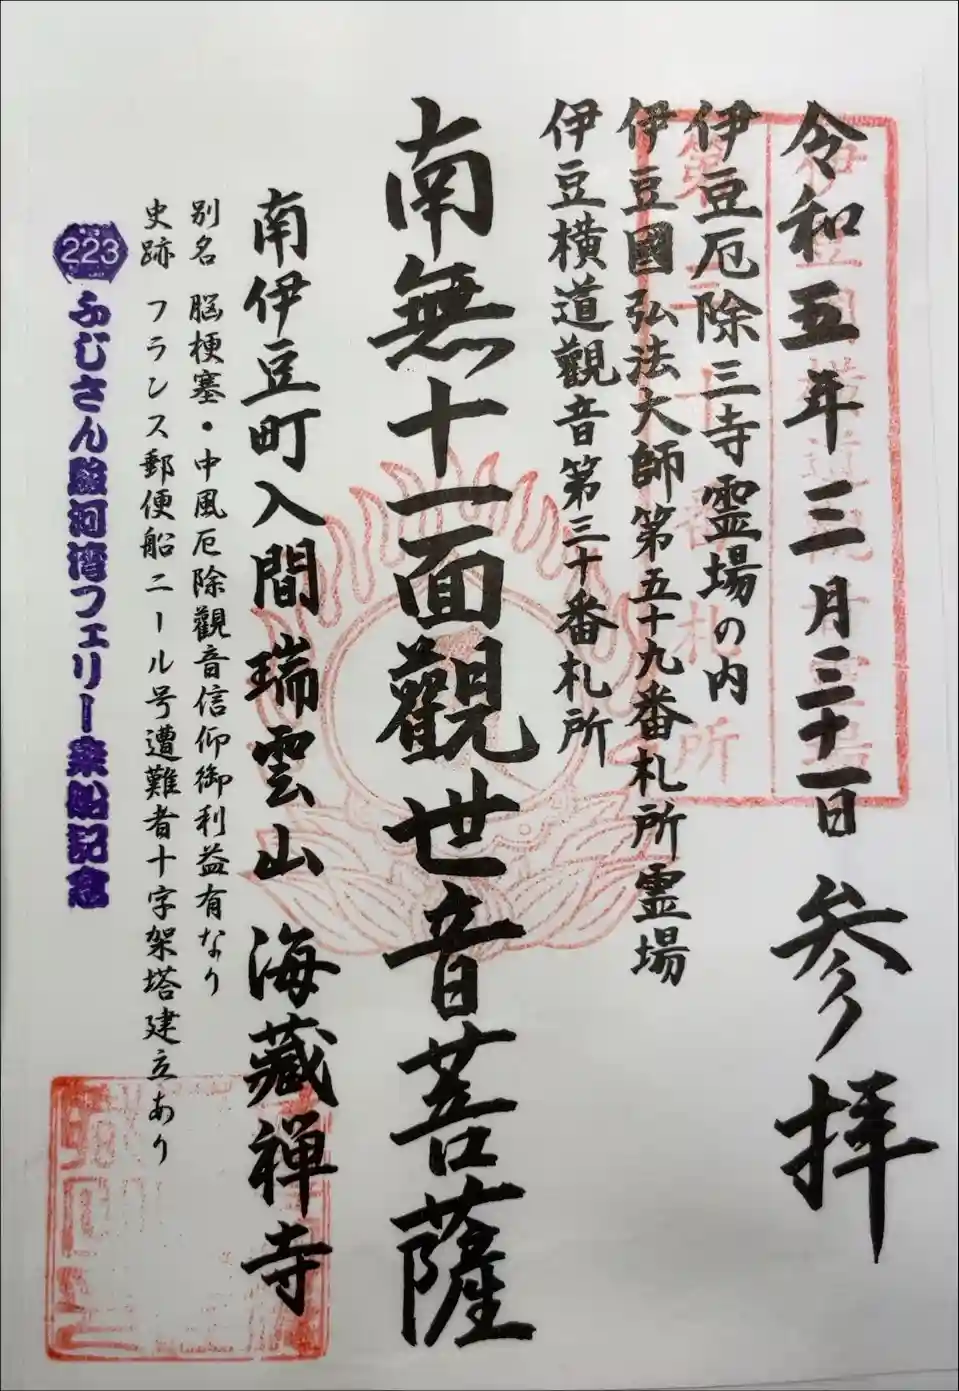 令和五年三月三十一日 参拝
伊豆厄除三寺霊場の内
伊豆國弘法大師第五十九番札所霊場
伊豆横道觀音第三十番札所
南無十一面觀世音菩薩
南伊豆町入間瑞雲山 海藏禅寺
別名 脳梗塞・中風厄除觀音信仰御利益有なり
史跡 フランス郵便船ニール号遭難者十字架塔建立あり
223 ふじさん駿河湾フェリー乗船記念